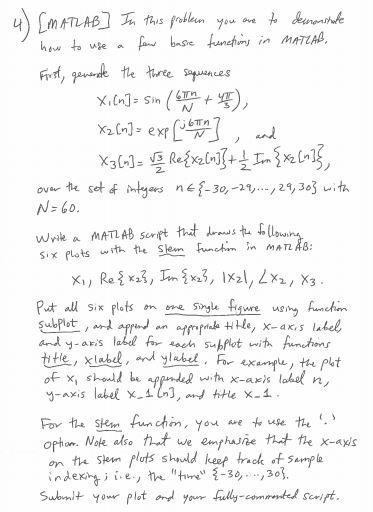 4) [MATLAB] In this problem you are to demonstrate
how to use a few basic functions in MATLAB.
First, generate the three sequences
x₁[n] = sin (6πn/N + 4π/3),
x₂[n] = exp [j6πn/N], and
x₃[n] = √3/2 Re{x₂[n]} + 1/2 Im{x₂[n]},
over the set of integers n ∈ {-30, -29, ..., 29, 30} with
N = 60.
Write a MATLAB script that draws the following
six plots with the stem function in MATLAB:
x₁, Re{x₂}, Im{x₂}, |x₂|, ∠x₂, x₃.
Put all six plots on one single figure using function
subplot, and append an appropriate title, x-axis label,
and y-axis label for each subplot with functions
title, xlabel, and ylabel. For example, the plot
of x₁ should be appended with x-axis label n,
y-axis label x_1[n], and title x_1.
For the stem function, you are to use the '.'
option. Note also that we emphasize that the x-axis
on the stem plots should keep track of sample
indexing; i.e., the "time" {-30, ..., 30}.
Submit your plot and your fully-commented script.